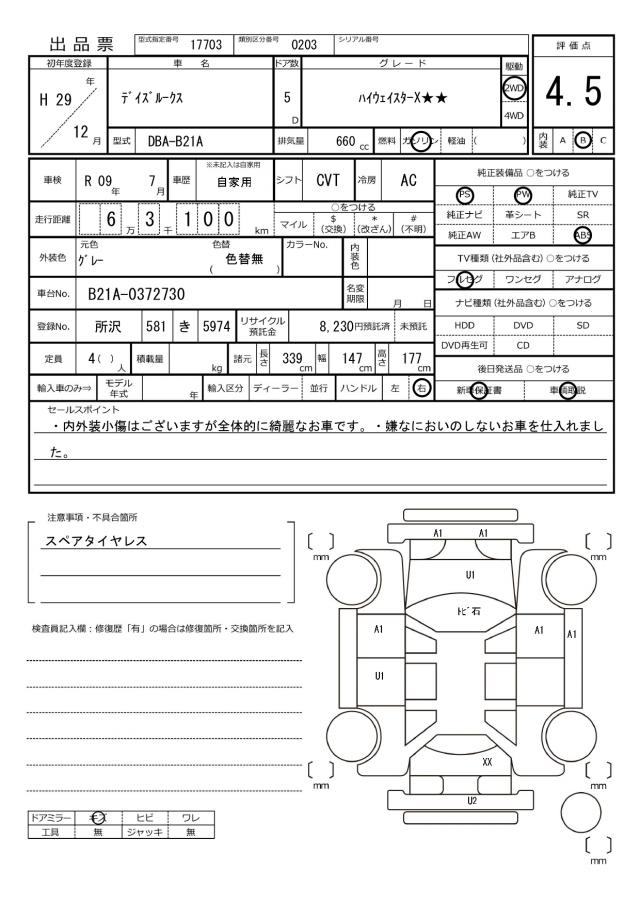 出品票 型式指定番号 17703 類別区分番号 0203 シリアル番号
評価点
4.5
内装 A B C
初年度登録 車名 ドア数 グレード 駆動
H 29 年 12 月
ﾃﾞｲｽﾞﾙｰｸｽ 5 D ﾊｲｳｪｲｽﾀｰX★★ 2WD
4WD
型式 DBA-B21A 排気量 660 cc 燃料 ガソリン 軽油 ( )
車検 R 09 年 7 月 車歴 ※未記入は自家用 自家用 シフト CVT 冷房 AC
走行距離 6 万 3 千 1 0 0 km
○をつける
マイル $ (交換) * (改ざん) # (不明)
外装色 元色 ｸﾞﾚｰ 色替 ( 色替無 ) カラーNo. 内装色
車台No. B21A-0372730 名変期限 月 日
登録No. 所沢 581 き 5974 リサイクル預託金 8,230円預託済 未預託
定員 4 ( ) 人 積載量 kg 諸元 長さ 339 cm 幅 147 cm 高さ 177 cm
輸入車のみ⇒ モデル年式 年 輸入区分 ディーラー 並行 ハンドル 左 右
純正装備品 ○をつける
PS PW 純正TV
純正ナビ 革シート SR
純正AW エアB ABS
TV種類 (社外品含む) ○をつける
フルセグ ワンセグ アナログ
ナビ種類 (社外品含む) ○をつける
HDD DVD SD
DVD再生可 CD
後日発送品 ○をつける
新車保証書 車輌取説
セールスポイント
・内外装小傷はございますが全体的に綺麗なお車です。・嫌なにおいのしないお車を仕入れまし
た。
注意事項・不具合箇所
スペアタイヤレス
検査員記入欄：修復歴「有」の場合は修復箇所・交換箇所を記入
ドアミラー キズ ヒビ ワレ
工具 無 ジャッキ 無
A1 A1
mm mm
U1
ﾄﾋﾞ石
A1 A1 A1
U1
XX
mm mm
U2
mm